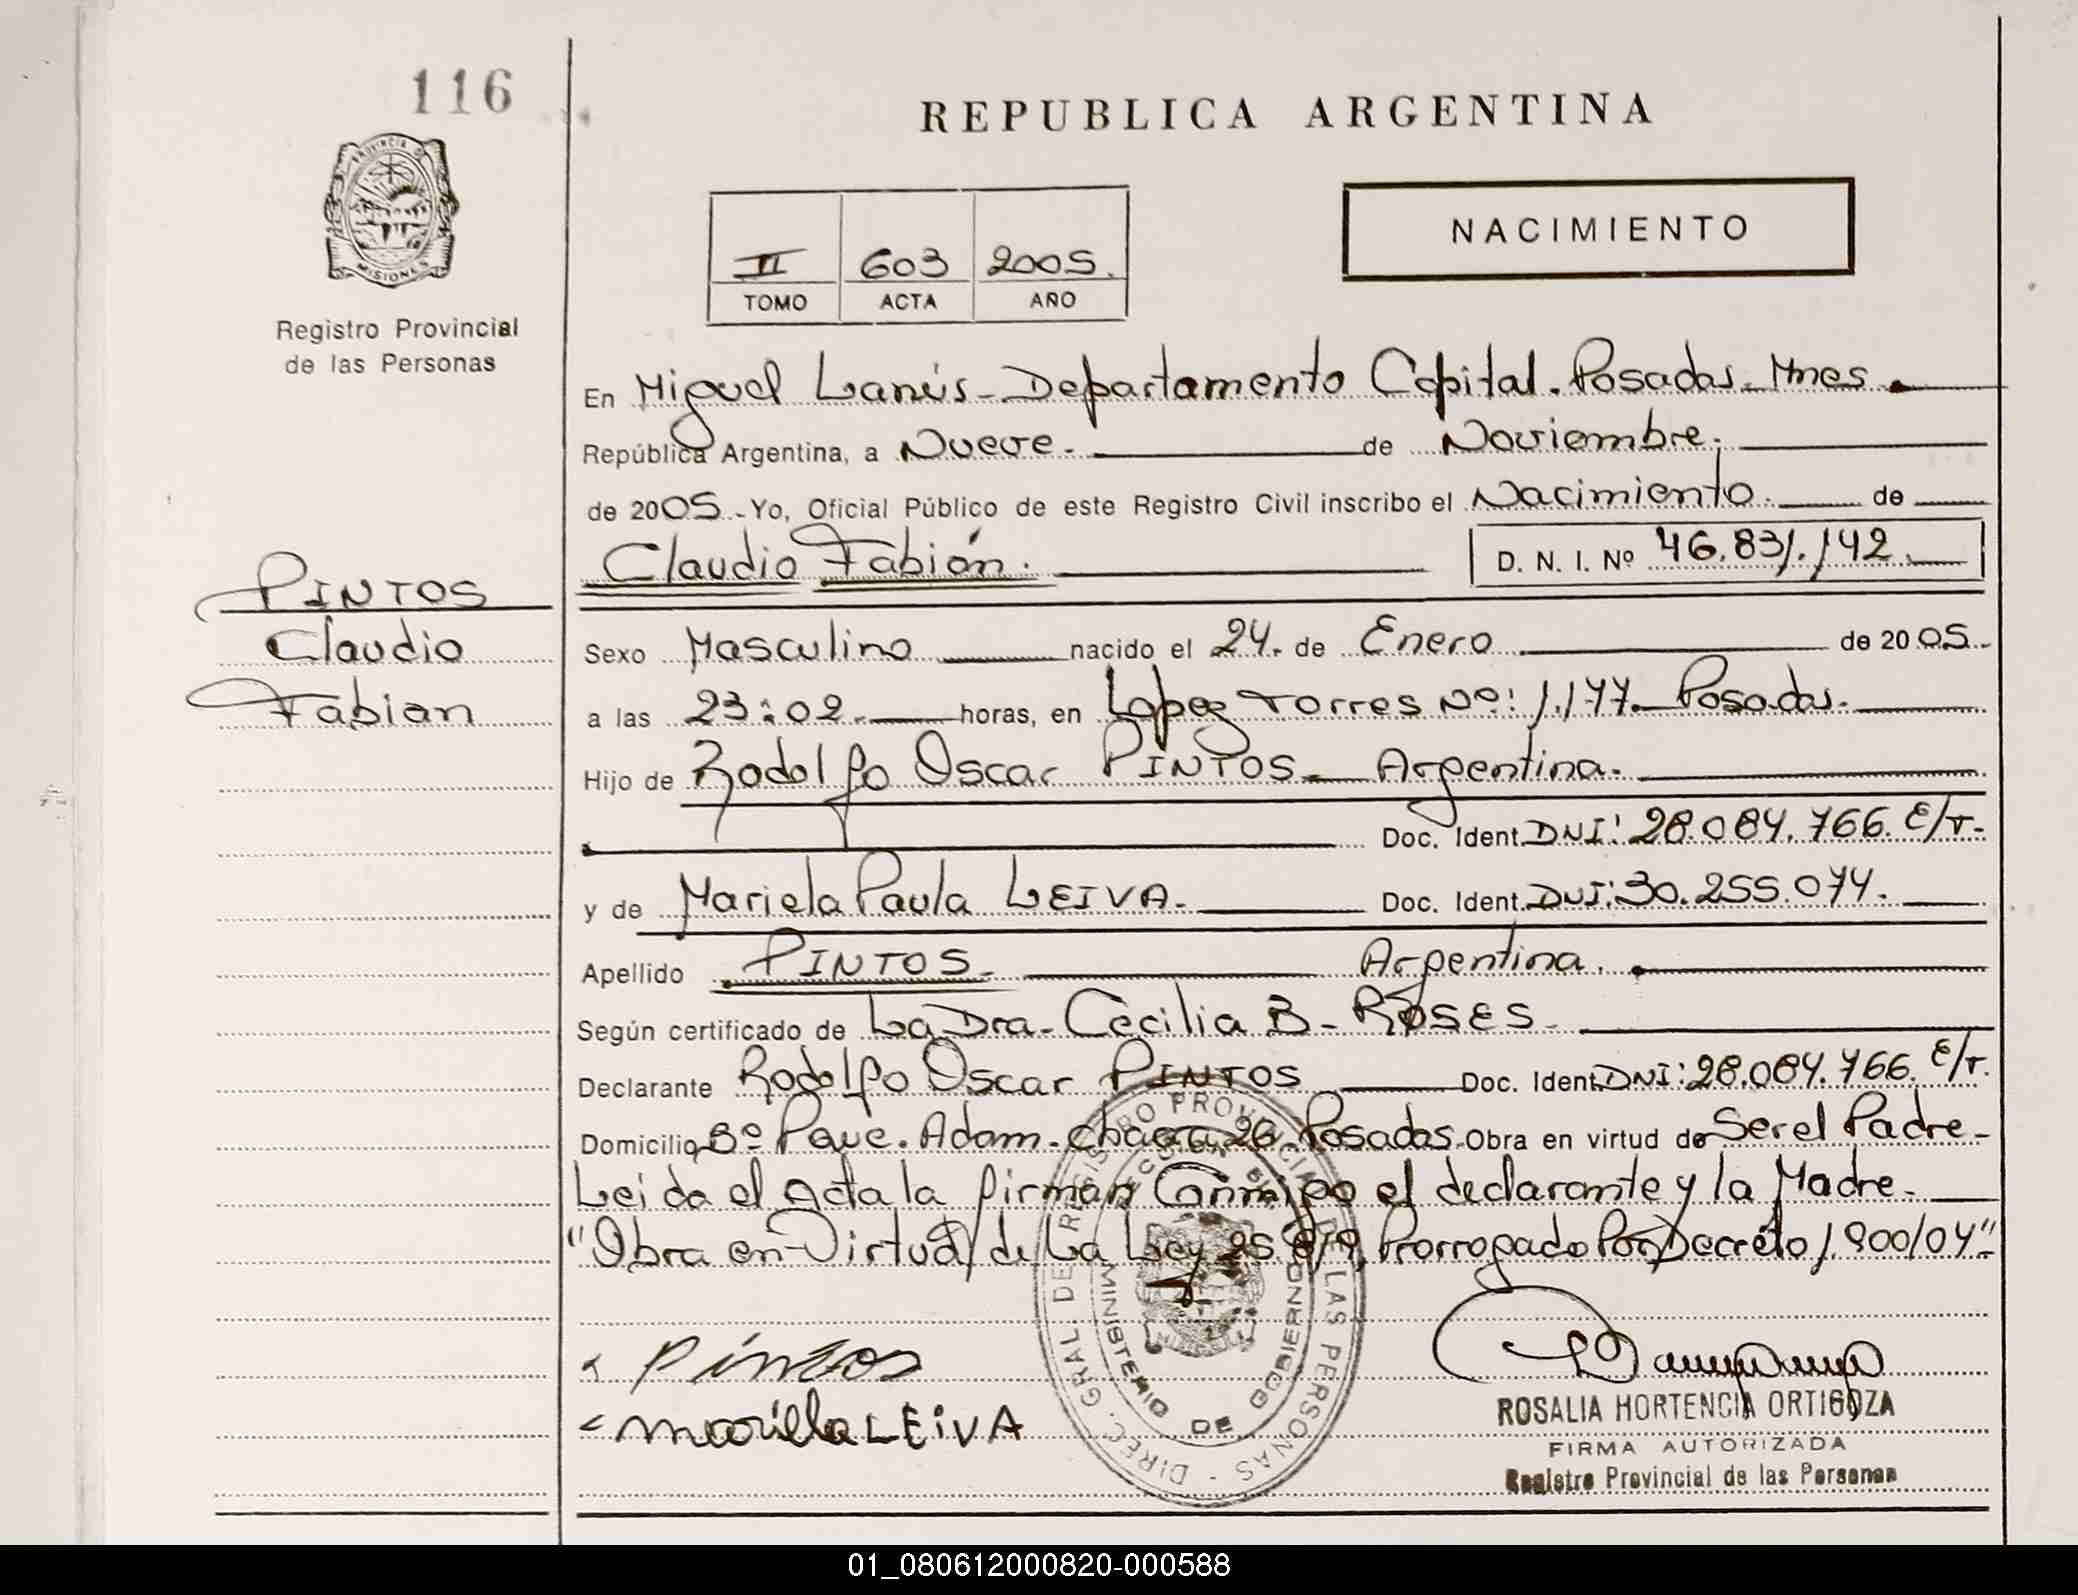 116
REPUBLICA ARGENTINA
PROVINCIA DE
MISIONES
Registro Provincial
de las Personas
II 603 2005.
TOMO ACTA AÑO
NACIMIENTO
En Miguel Lanús - Departamento Capital. Posadas - Mnes.
República Argentina, a Nueve. de Noviembre.
de 2005. - Yo, Oficial Público de este Registro Civil inscribo el Nacimiento. de
Claudio Fabián. D. N. I. Nº 46.831.142.
PINTOS
Claudio
Fabian
Sexo Masculino nacido el 24. de Enero de 2005.
a las 23:02. horas, en Lopez Torres Nº: 1.177. Posadas.
Hijo de Rodolfo Oscar PINTOS. Argentina.
Doc. Ident. DNI: 28.084.766. E/T.
y de Mariela Paula LEIVA. Doc. Ident. DNI: 30.255.074.
Apellido PINTOS. Argentina.
Según certificado de La Dra. Cecilia B. ROSES.
Declarante Rodolfo Oscar PINTOS Doc. Ident. DNI: 28.084.766. E/T.
Domicilio Bº Adam. Chacra 26. Posadas. Obra en virtud de Ser el Padre.
Leida el Acta la firman Conmigo el declarante y la Madre.
"Obra en Virtud de La Ley 25.819, Prorrogado Por Decreto 1.900/04".
DIREC. GRAL. DE REGISTRO PROVINCIAL DE LAS PERSONAS -
MINISTERIO DE GOBIERNO
Pintos
Mariela LEIVA
ROSALIA HORTENCIA ORTIGOZA
FIRMA AUTORIZADA
Registro Provincial de las Personas
01_080612000820-000588